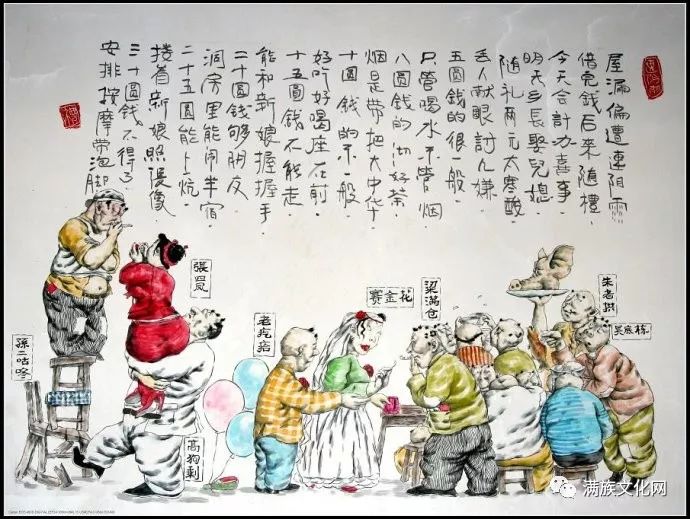 屋漏偏遭連阴雨
借完錢后來隨禮
今天合計办喜事
明天乡長娶兒媳
随礼两元太寒酸
丢人献眼討人嫌
五圆錢的很一般
只管喝水不管烟
八圆钱的沏好茶
烟是带把大中华
十圆錢的不一般
好吃好喝座在前
十五圓钱不能走
能和新娘握握手
二十圓钱够朋友
洞房里能闹半宿
二十五圆能上炕
搂着新娘照張像
三十圆錢不得了
安排按摩带泡脚
朱老拱
梁满仓
賽金花
老疙瘩
高狗剩
孫二咕咚
满族文化网